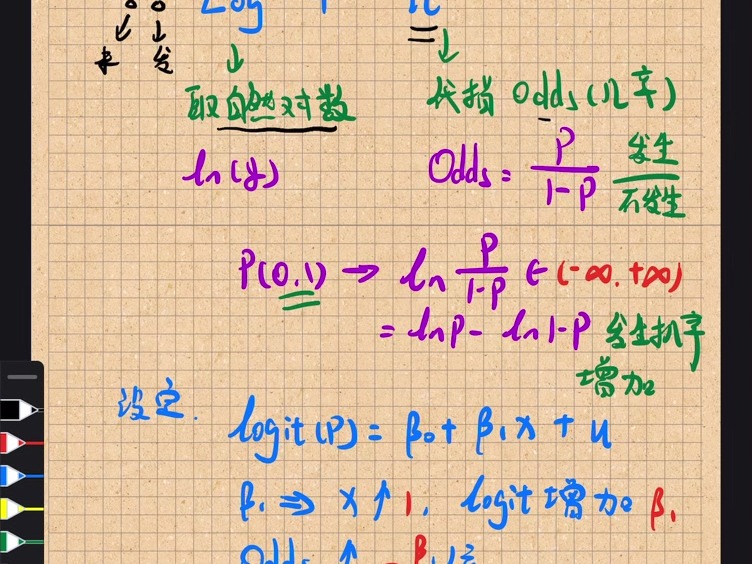 Log it
未 发
取自然对数 代指 Odds(几率)
ln(y) Odds = P/1-P 发生/不发生
P(0,1) → ln P/1-P ∈ (-∞, +∞)
= lnP - ln1-P 发生概率
增加
设定. logit(P) = β₀ + β₁x + u
β₁ ⇒ x↑1, logit增加β₁
Odds ↑